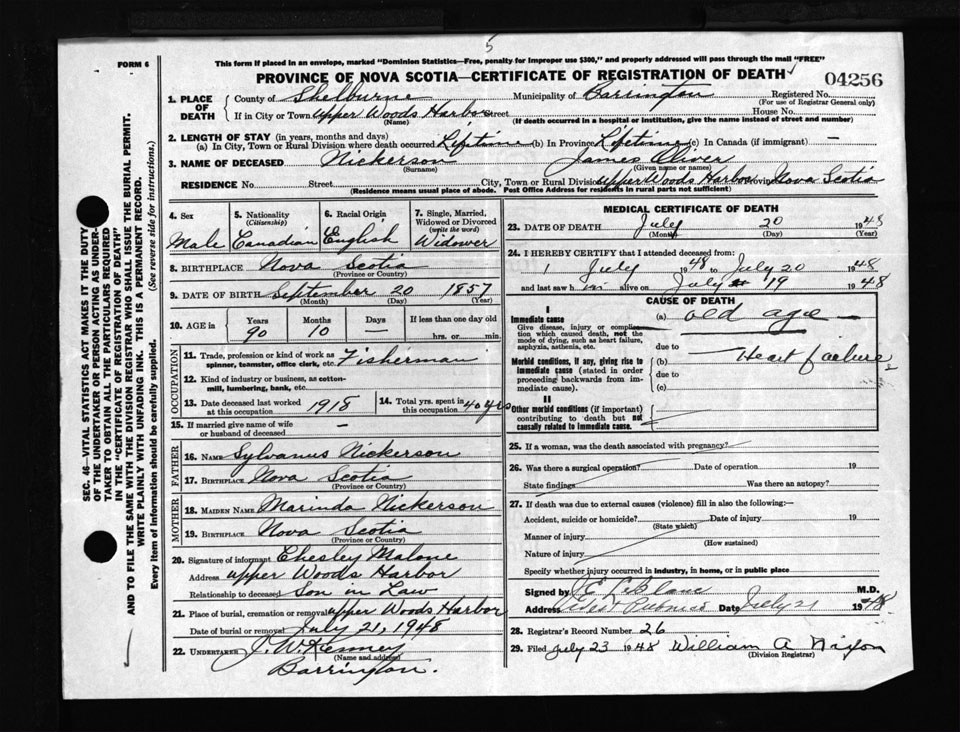 5
FORM 6
This form if placed in an envelope, marked "Dominion Statistics—Free, penalty for improper use $300," and properly addressed will pass through the mail "FREE"
PROVINCE OF NOVA SCOTIA—CERTIFICATE OF REGISTRATION OF DEATH
04256
SEC. 46—VITAL STATISTICS ACT MAKES IT THE DUTY
OF THE UNDERTAKER OR PERSON ACTING AS UNDER-
TAKER TO OBTAIN ALL THE PARTICULARS REQUIRED
IN THE "CERTIFICATE OF REGISTRATION OF DEATH"
AND TO FILE THE SAME WITH THE DIVISION REGISTRAR WHO SHALL ISSUE THE BURIAL PERMIT.
WRITE PLAINLY WITH UNFADING INK. THIS IS A PERMANENT RECORD.
Every item of information should be carefully supplied. (See reverse side for instructions.)
1. PLACE OF DEATH
County of Shelburne Municipality of Barrington Registered No.
(For use of Registrar General only)
If in City or Town Upper Woods Harbor Street House No.
(Name) (If death occurred in a hospital or institution, give the name instead of street and number)
2. LENGTH OF STAY (in years, months and days)
(a) In City, Town or Rural Division where death occurred Lifetime (b) In Province Lifetime (c) In Canada (if immigrant) —
3. NAME OF DECEASED Nickerson James Oliver
(Surname) (Given name or names)
RESIDENCE No. Street City, Town or Rural Division Upper Woods Harbor Province Nova Scotia
(Residence means usual place of abode. Post Office Address for residents in rural parts not sufficient)
4. Sex
Male
5. Nationality
(Citizenship)
Canadian
6. Racial Origin
English
7. Single, Married,
Widowed or Divorced
(write the word)
Widower
8. BIRTHPLACE Nova Scotia
(Province or Country)
9. DATE OF BIRTH September 20 1857
(Month) (Day) (Year)
10. AGE in
Years Months Days If less than one day old
90 10 — hrs. or min.
OCCUPATION
11. Trade, profession or kind of work as Fisherman
spinner, teamster, office clerk, etc.
12. Kind of industry or business, as cotton-
mill, lumbering, bank, etc.
13. Date deceased last worked
at this occupation 1918
14. Total yrs. spent in
this occupation 40 yrs
15. If married give name of wife
or husband of deceased —
FATHER
16. Name Sylvanus Nickerson
17. Birthplace Nova Scotia
(Province or Country)
MOTHER
18. Maiden Name Marinda Nickerson
19. Birthplace Nova Scotia
(Province or Country)
20. Signature of informant Chesley Malone
Address Upper Woods Harbor
Relationship to deceased Son in Law
21. Place of burial, cremation or removal Upper Woods Harbor
Date of burial or removal July 21, 1948
22. UNDERTAKER J. W. Kenney
(Name and address)
Barrington.
MEDICAL CERTIFICATE OF DEATH
23. DATE OF DEATH July 20 1948
(Month) (Day) (Year)
24. I HEREBY CERTIFY that I attended deceased from:
1 July 1948 to July 20 1948
and last saw him alive on July 19 1948
CAUSE OF DEATH
I
Immediate cause
Give disease, injury or complica-
tion which caused death, not the
mode of dying, such as heart failure,
asphyxia, asthenia, etc.
(a) old age
due to
Morbid conditions, if any, giving rise to
immediate cause (stated in order
proceeding backwards from im-
mediate cause).
(b) Heart failure
due to
(c)
II
Other morbid conditions (if important)
contributing to death but not
causally related to immediate cause.
25. If a woman, was the death associated with pregnancy?
26. Was there a surgical operation? Date of operation 19
State findings Was there an autopsy?
27. If death was due to external causes (violence) fill in also the following:—
Accident, suicide or homicide? Date of injury 19
(State which)
Manner of injury
(How sustained)
Nature of injury
Specify whether injury occurred in industry, in home, or in public place
Signed by E LeBlanc M.D.
Address West Pubnico Date July 21 1948
28. Registrar's Record Number 26
29. Filed July 23 1948 William A Nixon
(Division Registrar)